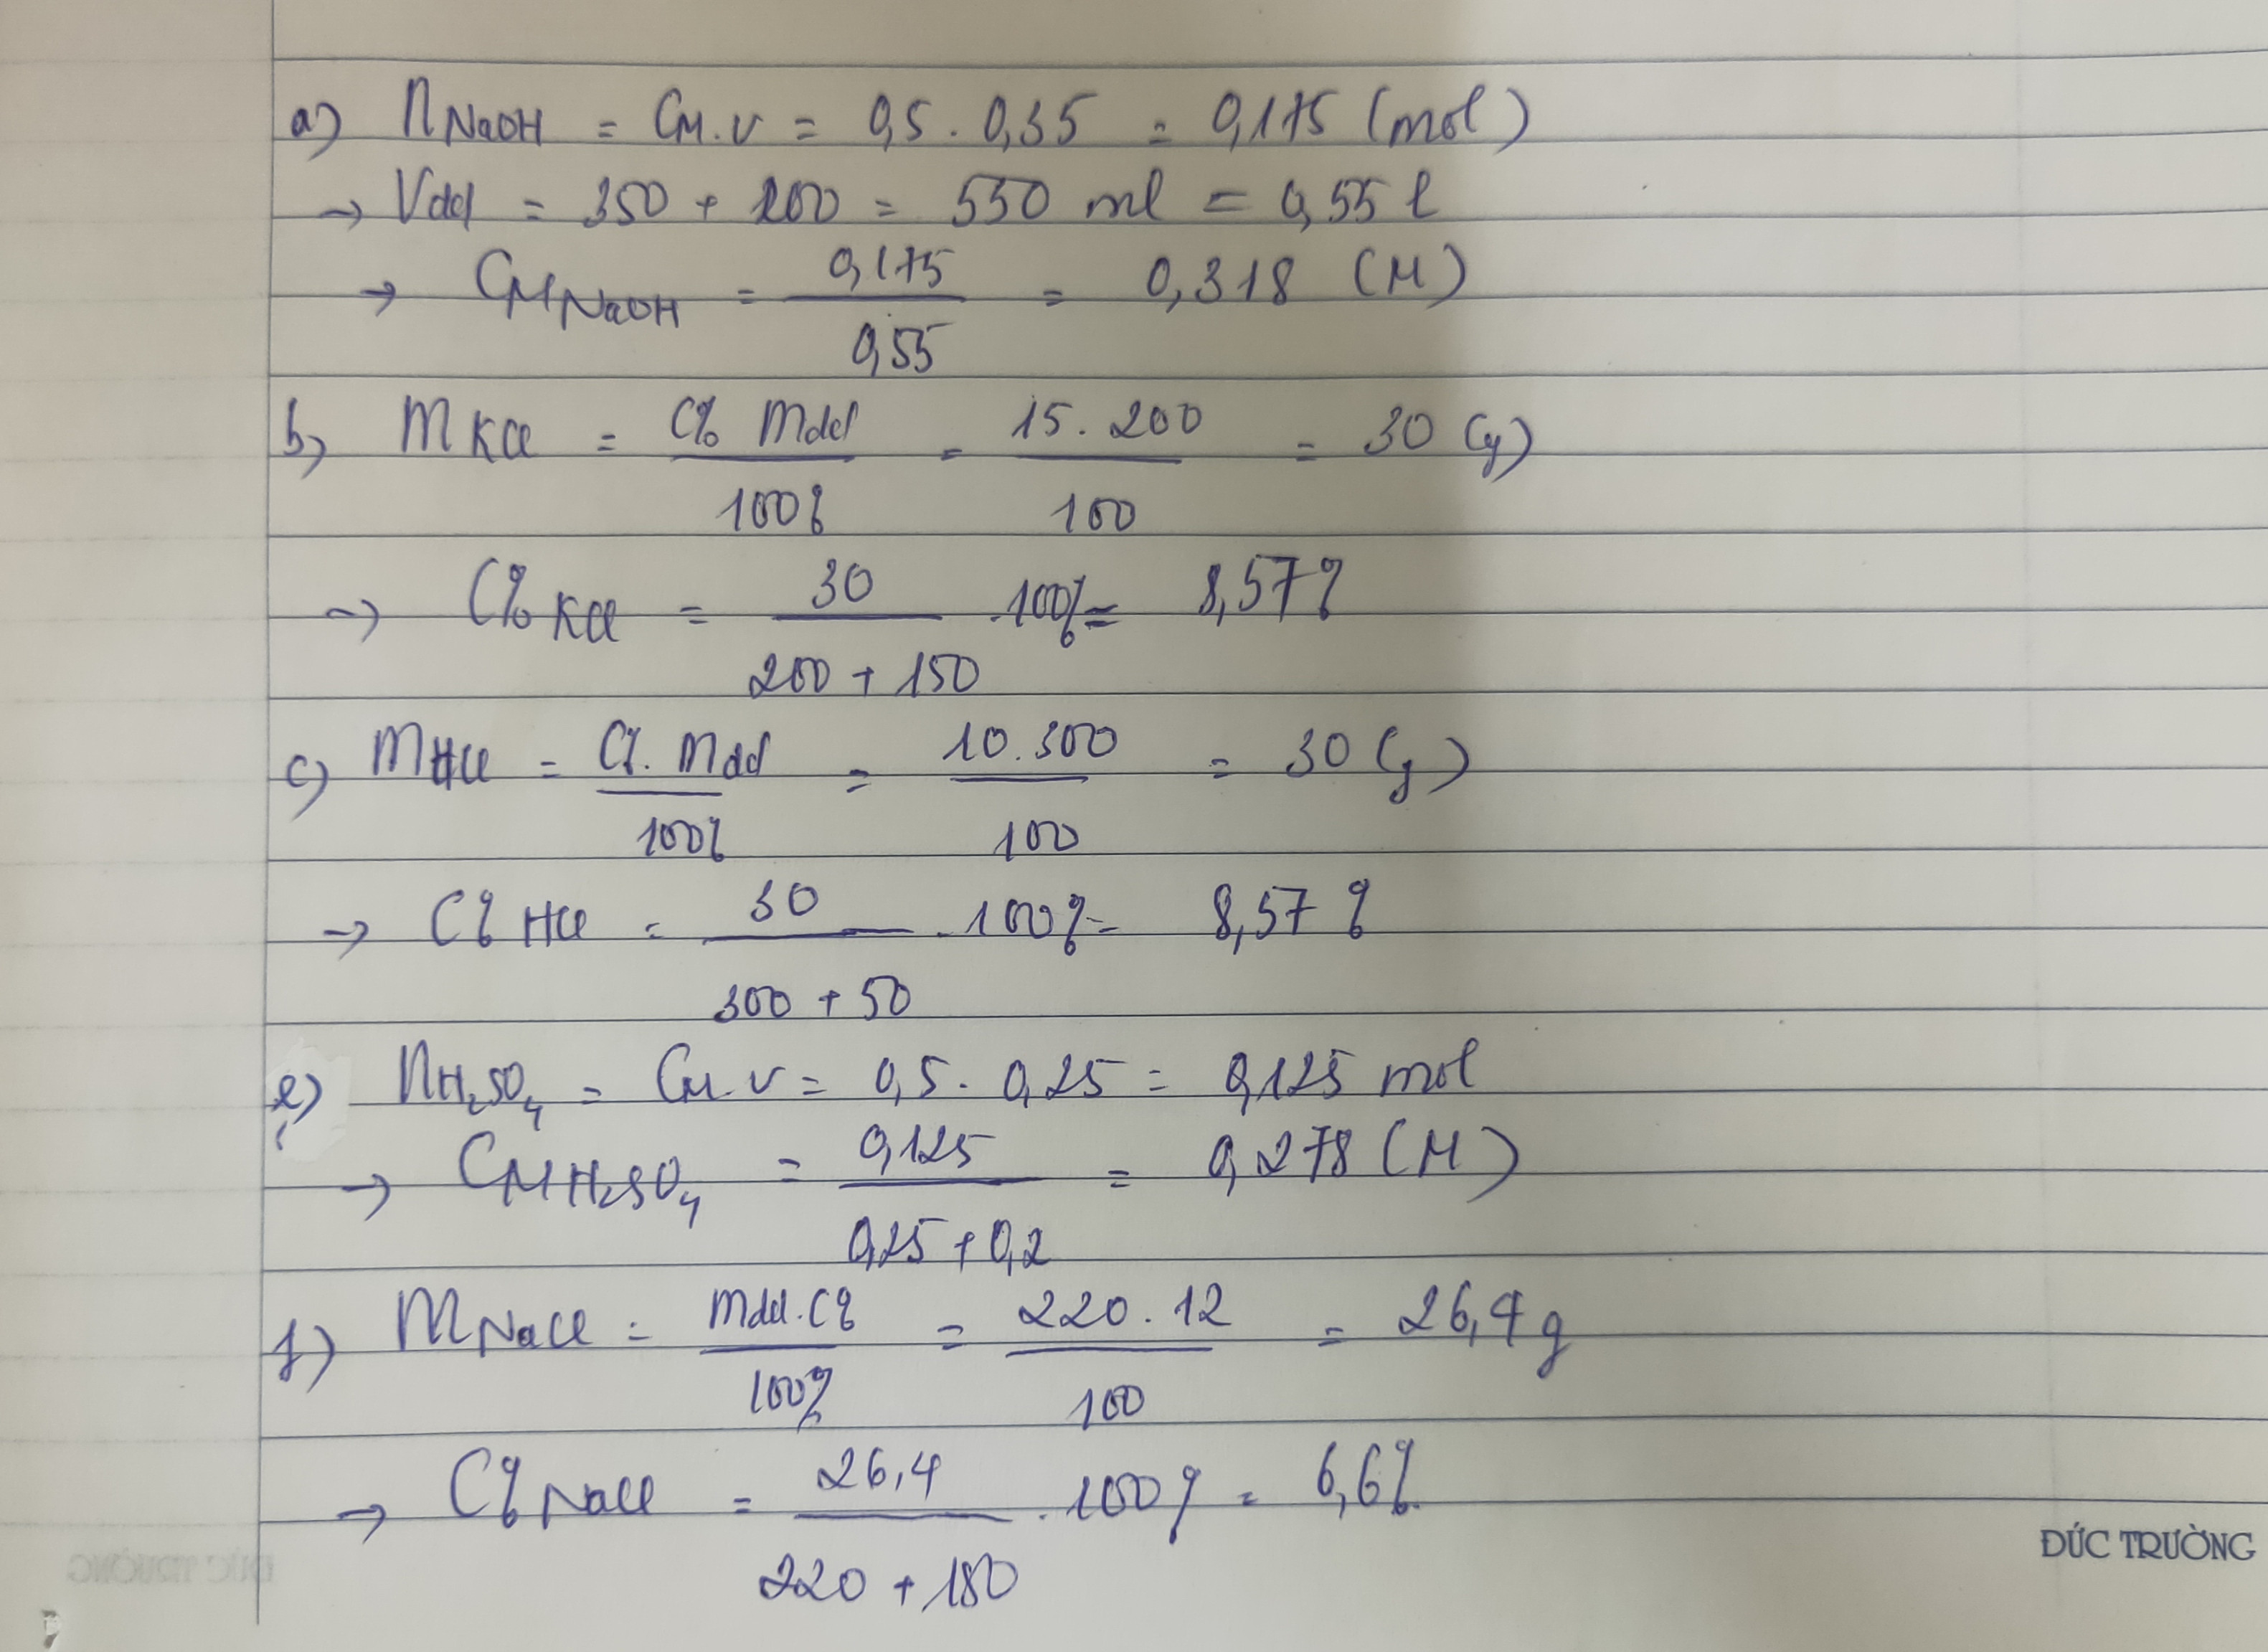 a) nNaOH = CM.V = 0,5 . 0,35 = 0,175 (mol)
→ Vdd = 350 + 200 = 550 ml = 0,55 l
→ CM NaOH = 0,175 / 0,55 = 0,318 (M)
b) mKCl = C% mdd / 100% = 15.200 / 100 = 30 (g)
→ C% KCl = 30 / 200 + 150 .100% = 8,57%
c) mHCl = C%. mdd / 100% = 10.300 / 100 = 30 (g)
→ C% HCl = 30 / 300 + 50 . 100% = 8,57 %
e) nH₂SO₄ = CM.V = 0,5 . 0,25 = 0,125 mol
→ CM H₂SO₄ = 0,125 / 0,25 + 0,2 = 0,278 (M)
f) mNaCl = mdd.C% / 100% = 220 . 12 / 100 = 26,4 g
→ C% NaCl = 26,4 / 220 + 180 . 100% = 6,6%
ĐỨC TRƯỜNG